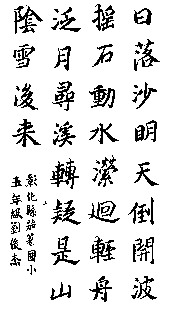 日落沙明天倒開波
搖石動水瀠迴輕舟
泛月尋溪轉疑是山
陰雪後来
彰化縣茄荖國小
五年級劉俊